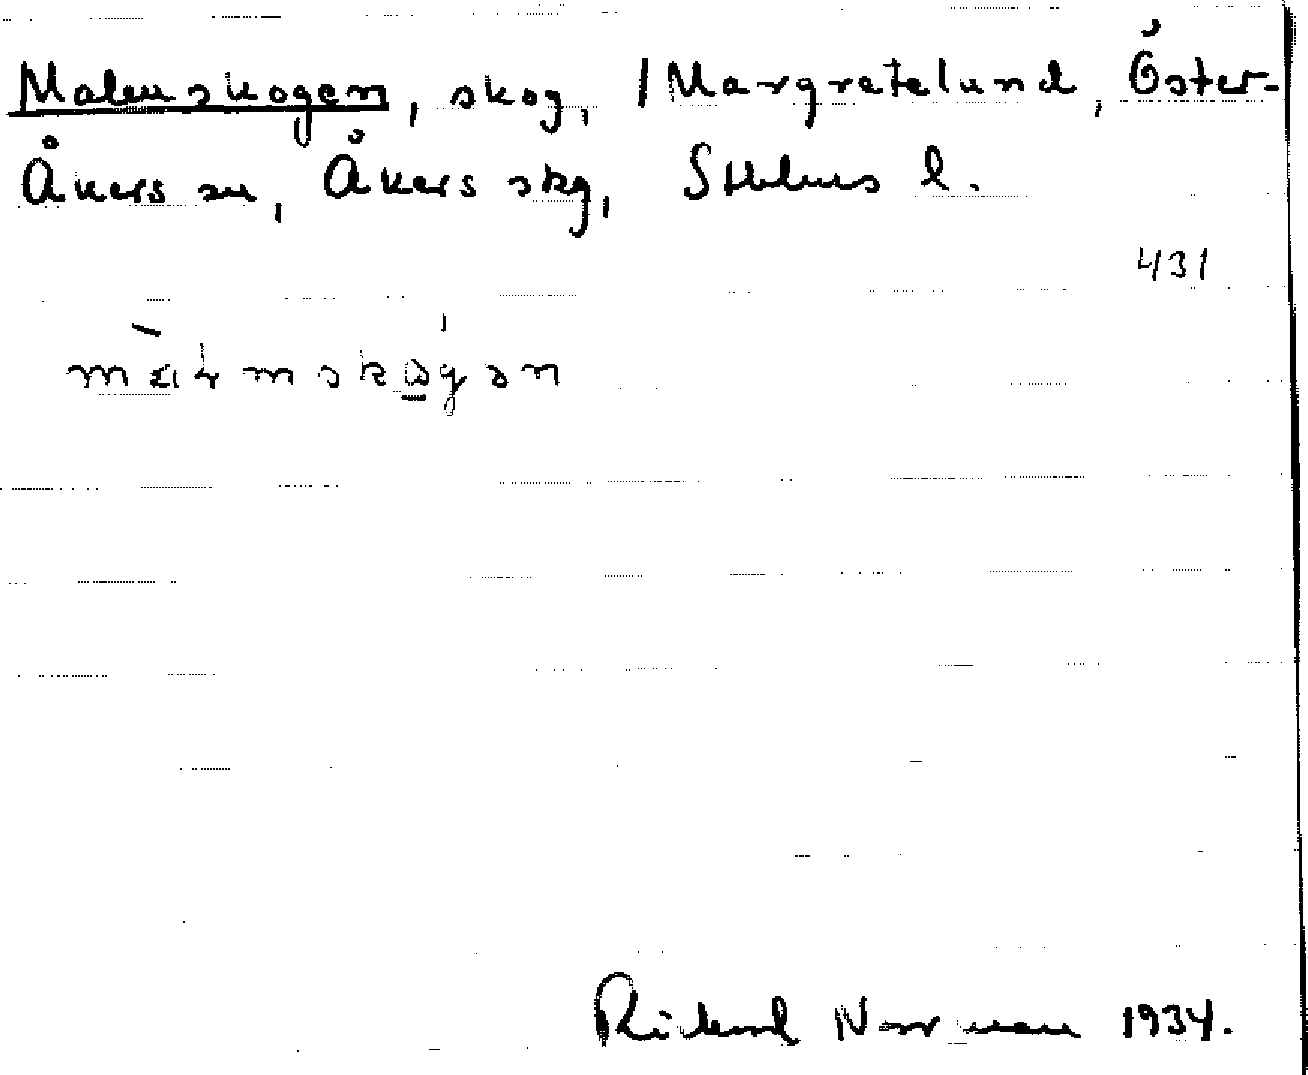 Malmskogen, skog, / Margretelund, Öster-
Åkers sn, Åkers skg, Sthlms l.
431
Rickard Norrman 1934.